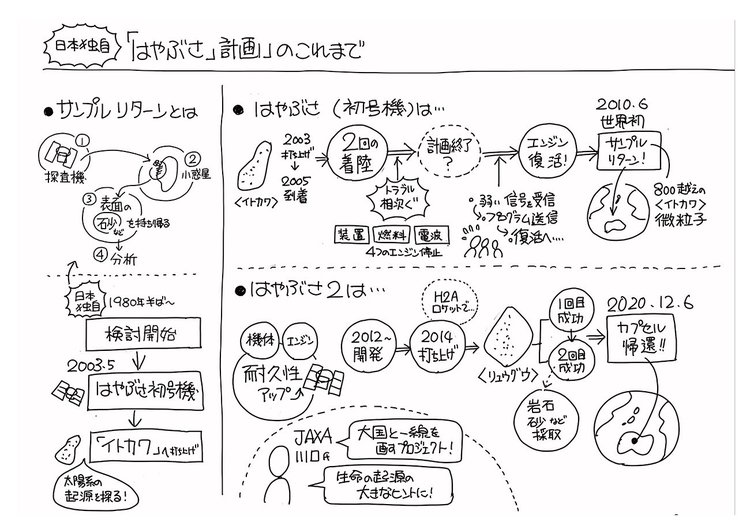 日本独自
「はやぶさ」計画」のこれまで
●サンプルリターンとは
①
探査機
②
小惑星
③
表面の
石砂など
を持ち帰る
④分析
日本独自
1980年半ば~
検討開始
2003.5
はやぶさ初号機
「イトカワ」へ打ち上げ
太陽系の
起源を探る!
●はやぶさ(初号機)は…
<イトカワ>
2003
打ち上げ
2005
到着
2回の
着陸
トラブル
相次ぐ
装置
燃料
電波
4つのエンジン停止
計画終了
?
弱い信号を受信
プログラム送信
復活へ…
エンジン
復活!
2010.6
世界初
サンプル
リターン!
800越えの
<イトカワ>
微粒子
●はやぶさ2は…
機体
エンジン
耐久性
アップ
2012~
開発
H2A
ロケットで…
2014
打ち上げ
<リュウグウ>
1回目
成功
2回目
成功
岩石
砂など
採取
2020.12.6
カプセル
帰還!!
JAXA
川口氏
大国と一線を
画すプロジェクト!
生命の起源の
大きなヒントに!